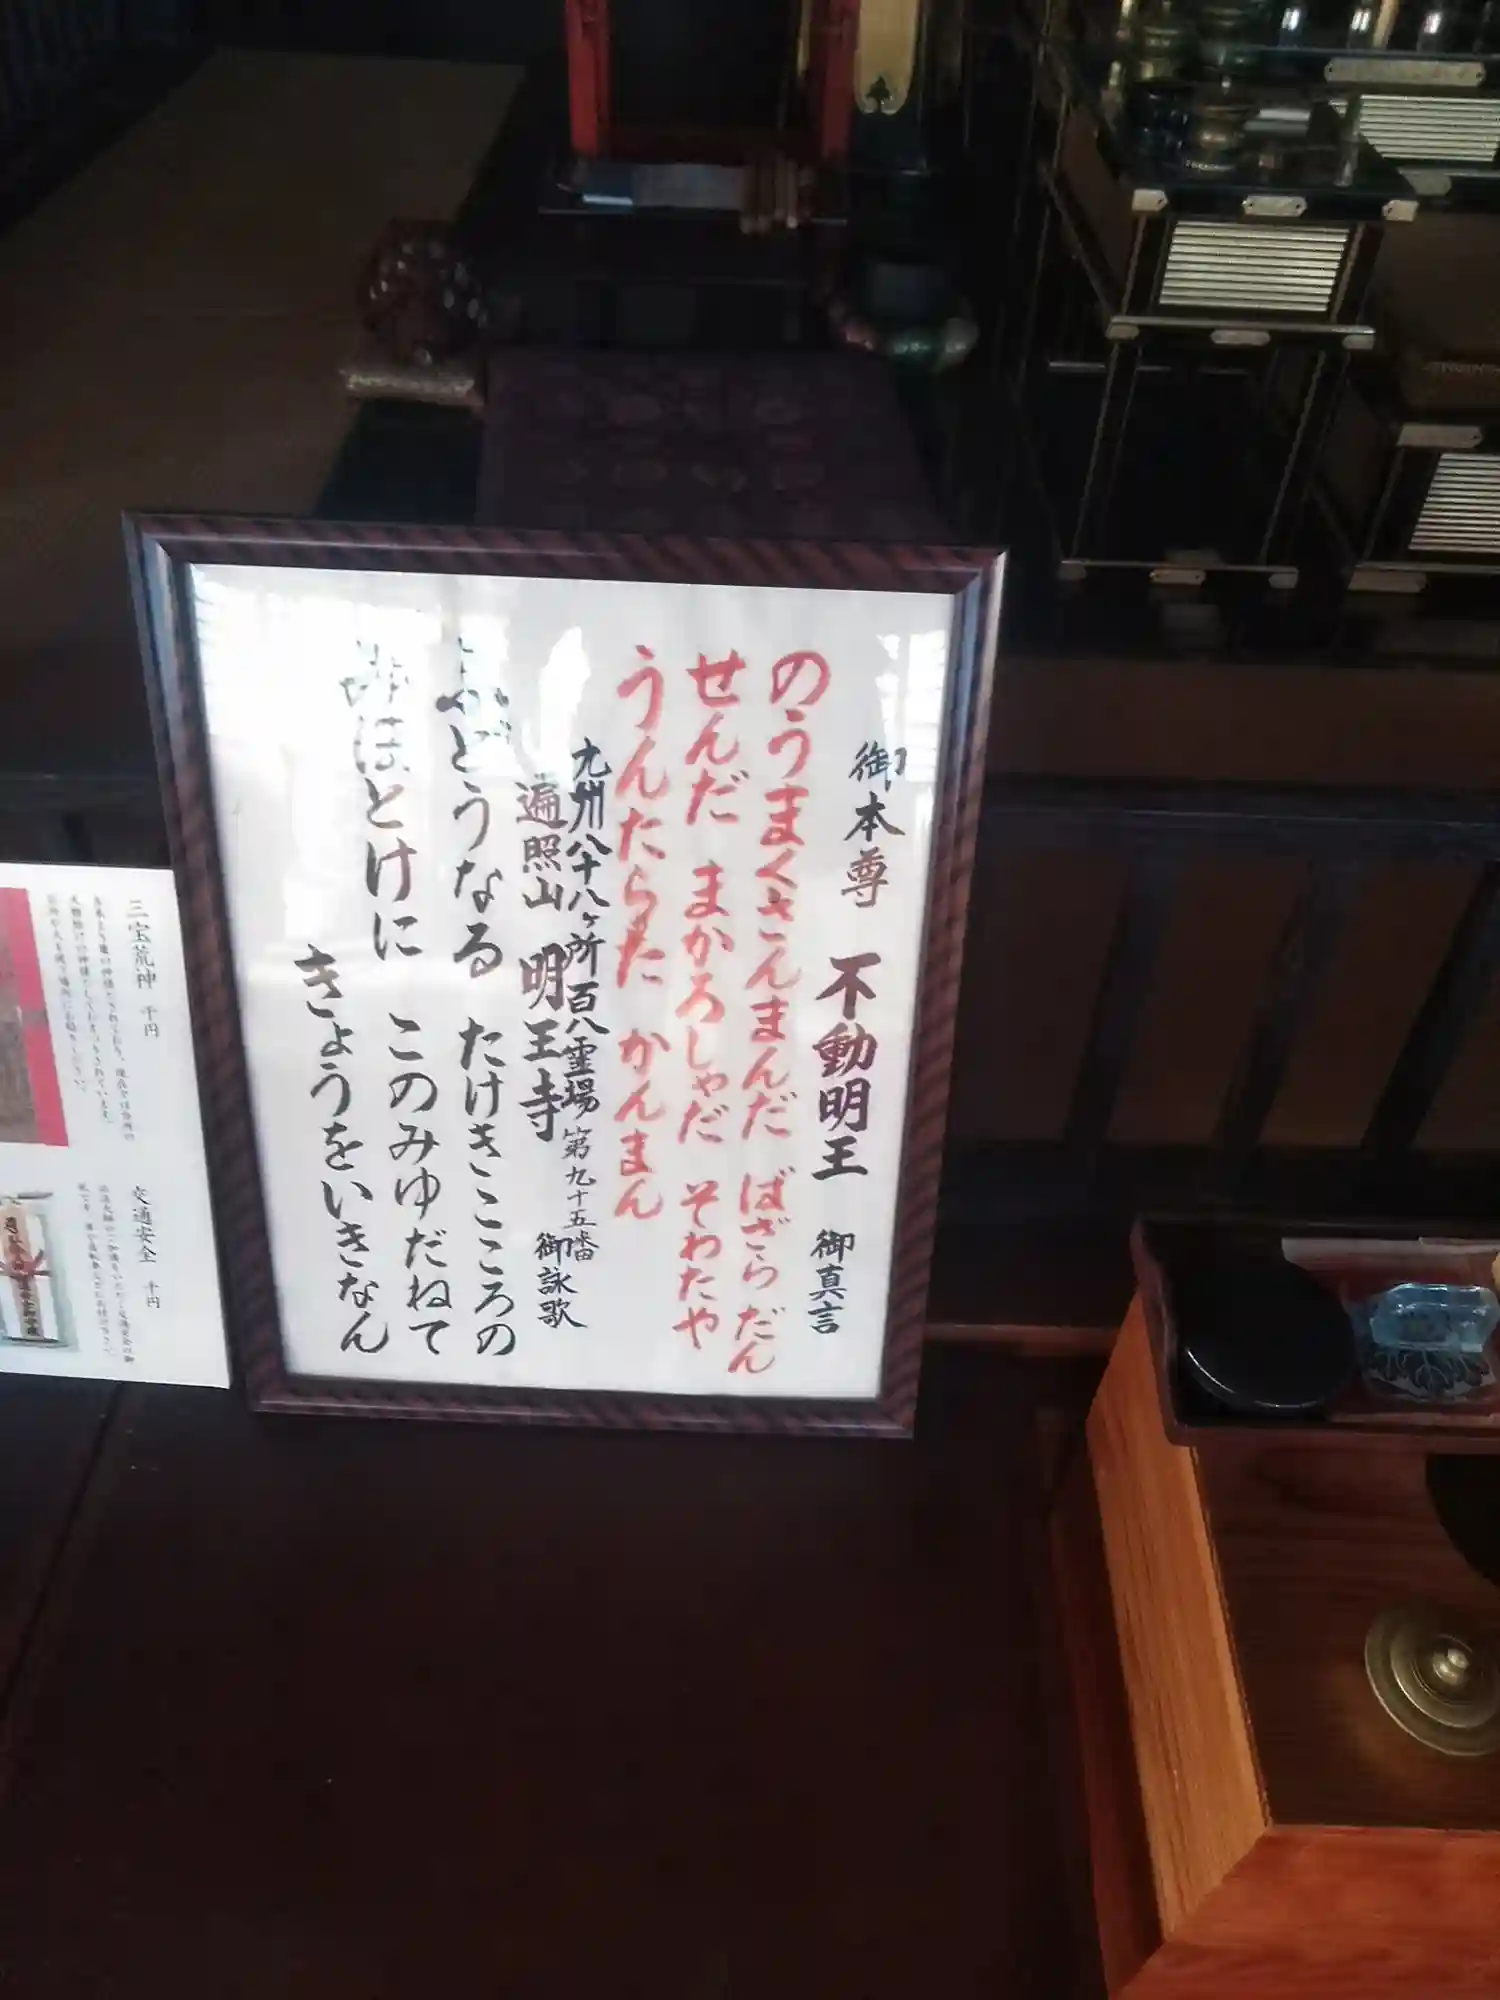 御本尊 不動明王 御真言
のうまくさんまんだ ばざらだん
せんだ まかろしゃだ そわたや
うんたらた かんまん
九州八十八ヶ所百八霊場 第九十五番
遍照山 明王寺 御詠歌
ふどうなる たけきこころの
みほとけに このみゆだねて
きょうをいきなん
三宝荒神 千円
交通安全 千円